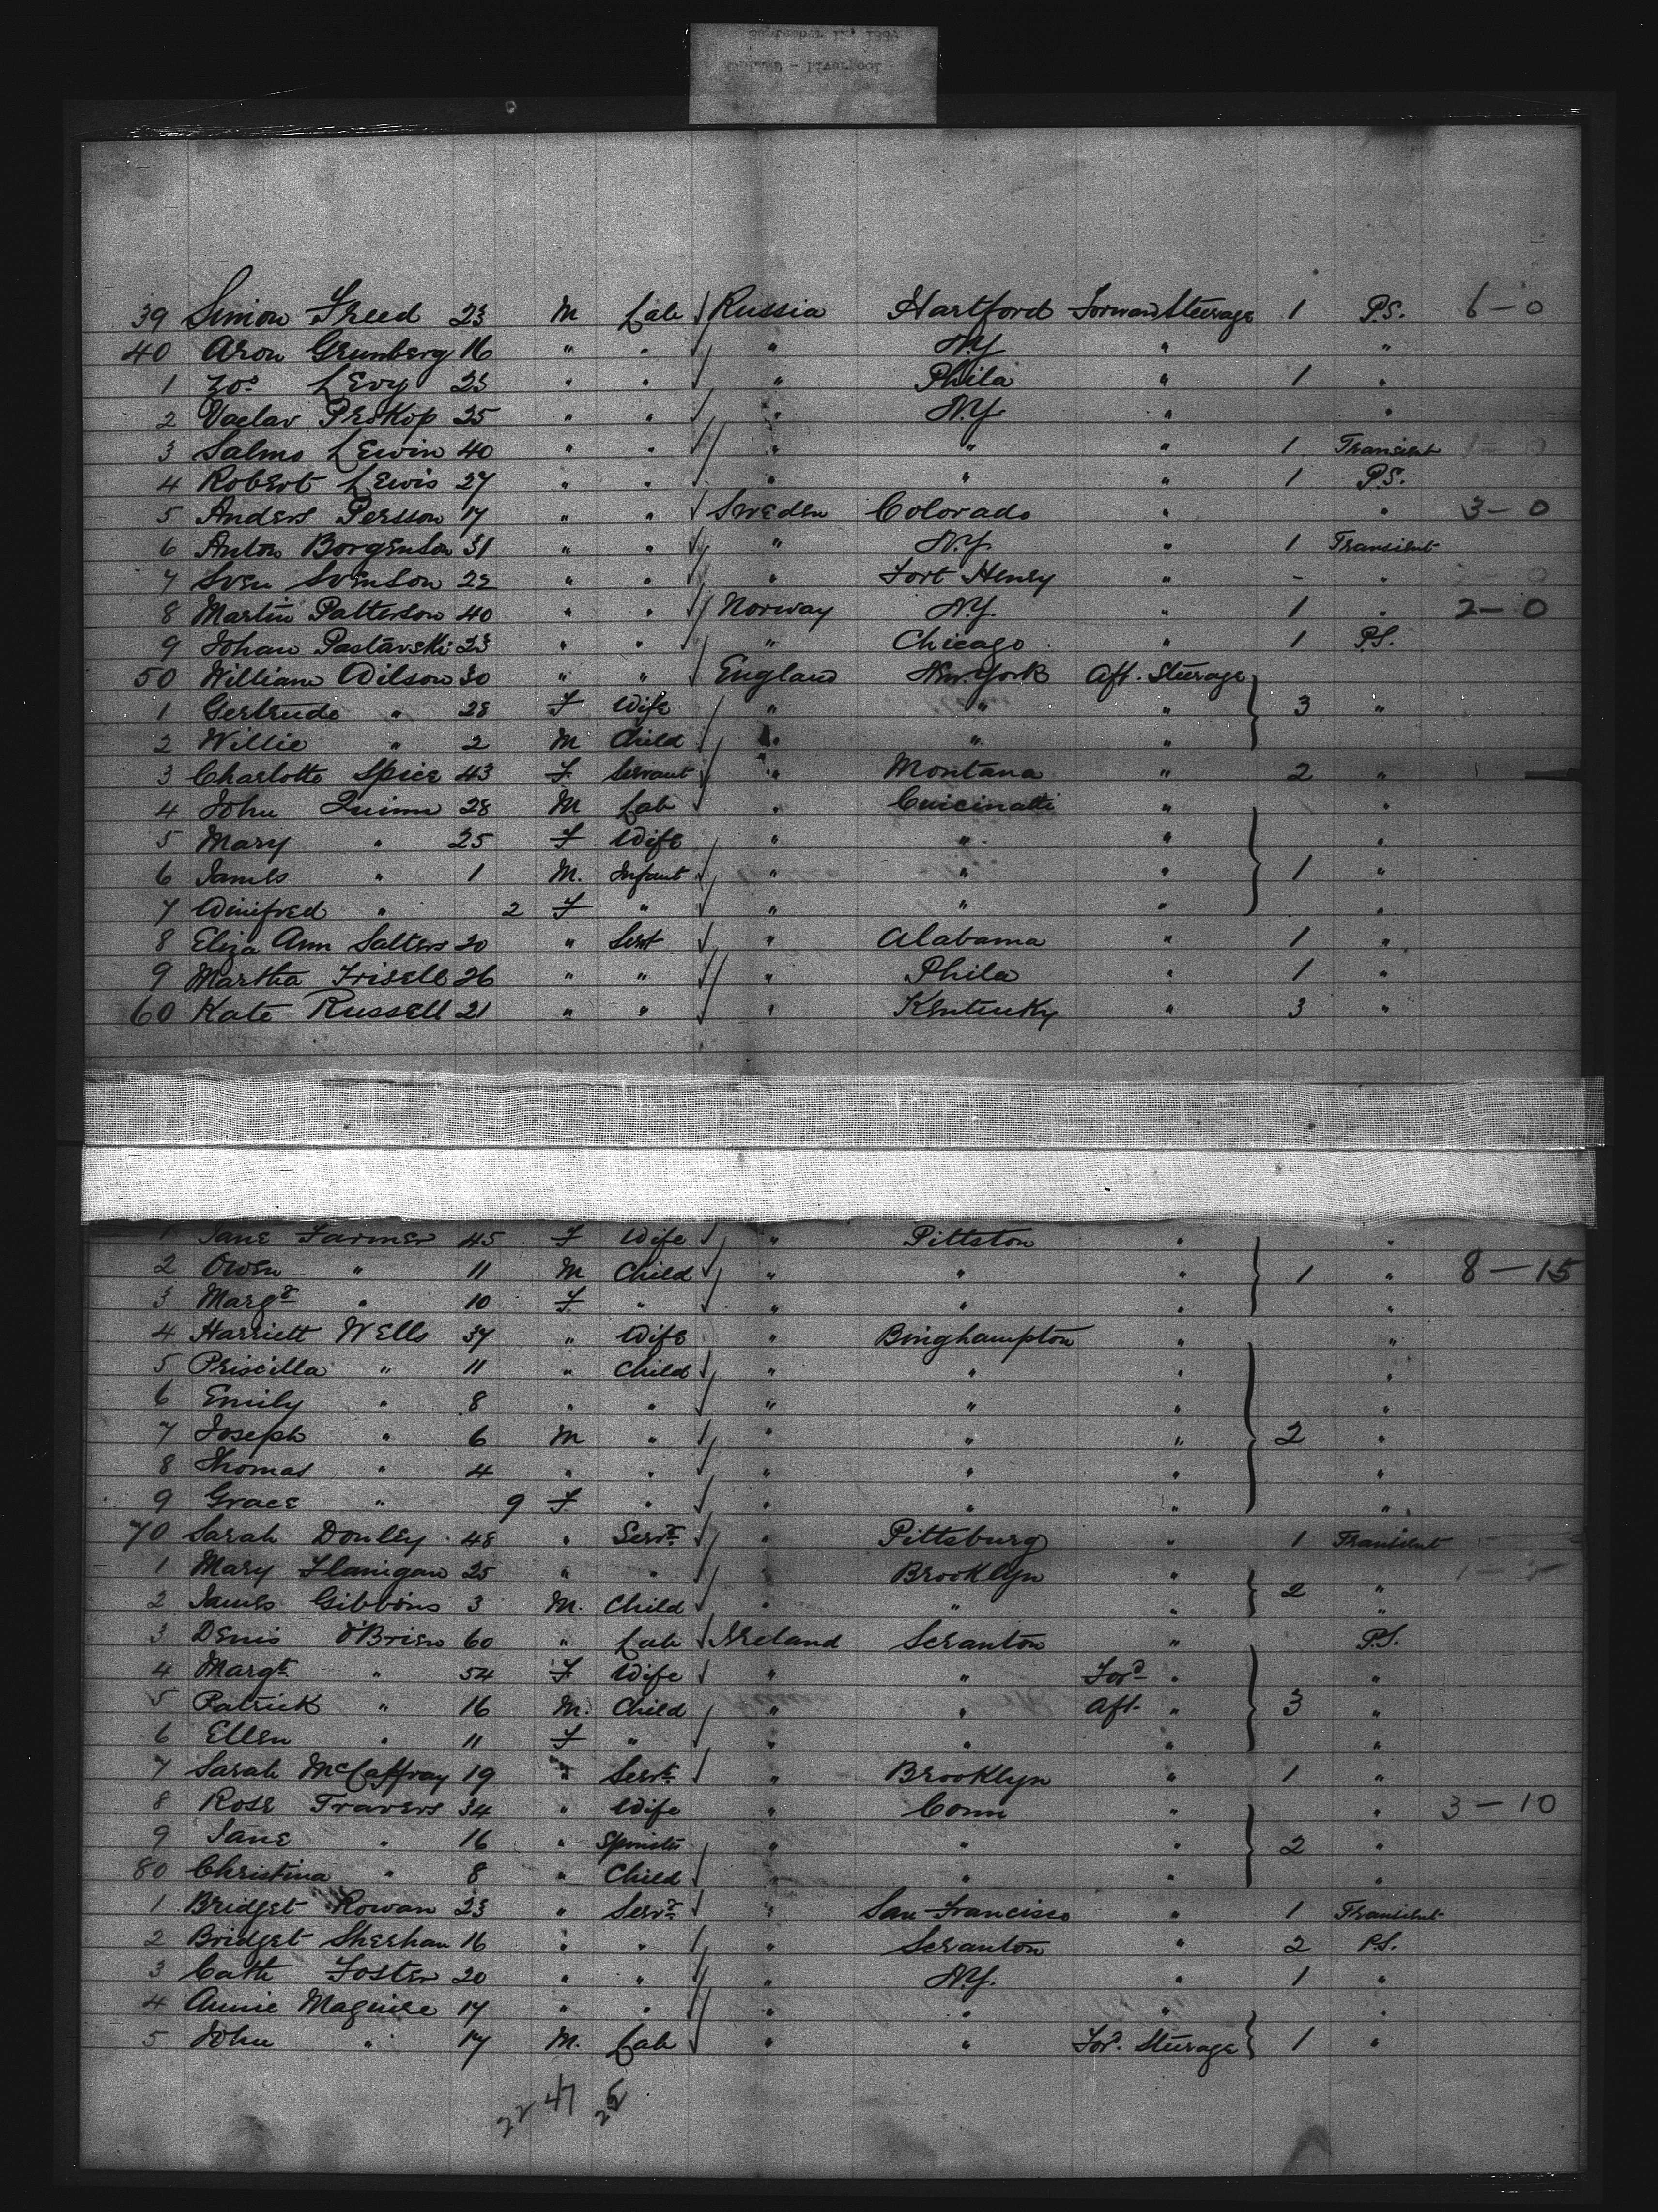 September 12, 1889
- Liverpool
39 Simon Freed 23 M Lab Russia Hartford Forward Steerage 1 P.S. 6-0
40 Aron Grunberg 16 " " " N.Y " "
1 Jos. Levy 23 " " " Phila " 1 "
2 Vaclav Prokop 25 " " " N.Y. " "
3 Salmo Lewin 40 " " " " " 1 Transient
4 Robert Lewis 27 " " " " " 1 P.S.
5 Anders Persson 17 " " Sweden Colorado " " 3-0
6 Anton Borgenson 31 " " " N.Y. " 1 Transient
7 Sven Svenson 22 " " " Fort Henry " - "
8 Martin Patterson 40 " " Norway N.Y. " 1 " 2-0
9 Johan Pastavski 23 " " " Chicago " 1 P.S.
50 William Wilson 30 " " England New York Aft. Steerage
1 Gertrude " 28 F Wife " " " 3 "
2 Willie " 2 M Child " " "
3 Charlotte Spice 43 F. Servant " Montana " 2 "
4 John Quinn 28 M Lab " Cincinatti " "
5 Mary " 25 F Wife " " " "
6 James " 1 M. Infant " " " 1 "
7 Winifred " 2 F " " " " "
8 Eliza Ann Salters 20 " Sert " Alabama " 1 "
9 Martha Frisell 26 " " " Phila " 1 "
60 Kate Russell 21 " " " Kentucky " 3 "
1 Jane Farmer 45 F Wife " Pittston " "
2 Owen " 11 M Child " " " 1 " 8-15
3 Margt " 10 F " " " " "
4 Harriett Wells 37 " Wife " Binghampton " "
5 Priscilla " 11 " Child " " " "
6 Emily " 8 " " " " " "
7 Joseph " 6 M " " " " 2 "
8 Thomas " 4 " " " " " "
9 Grace " 9 F " " " " "
70 Sarah Donley 48 " Servt " Pittsburg " 1 Transient
1 Mary Flanigan 25 " " " Brooklyn " 2 "
2 James Gibbons 3 M. Child " " " "
3 Denis O'Brien 60 " Lab Ireland Scranton " P.S.
4 Margt " 54 F Wife " " Ford " "
5 Patrick " 16 M. Child " " Aft. " 3 "
6 Ellen " 11 F " " " " "
7 Sarah McCaffray 19 " Servt " Brooklyn " 1 "
8 Rose Travers 34 " Wife " Conn " " 3-10
9 Jane " 16 " Spinster " " " 2 "
80 Christina " 8 " Child " " " "
1 Bridget Rowan 23 " Servt " San Francisco " 1 Transient
2 Bridget Sheehan 16 " " " Scranton " 2 P.S.
3 Cath Foster 20 " " " N.Y. " 1 "
4 Annie Maguire 17 " " " " " "
5 John " 17 M. Lab " " Ford Steerage 1 "
22 47 25